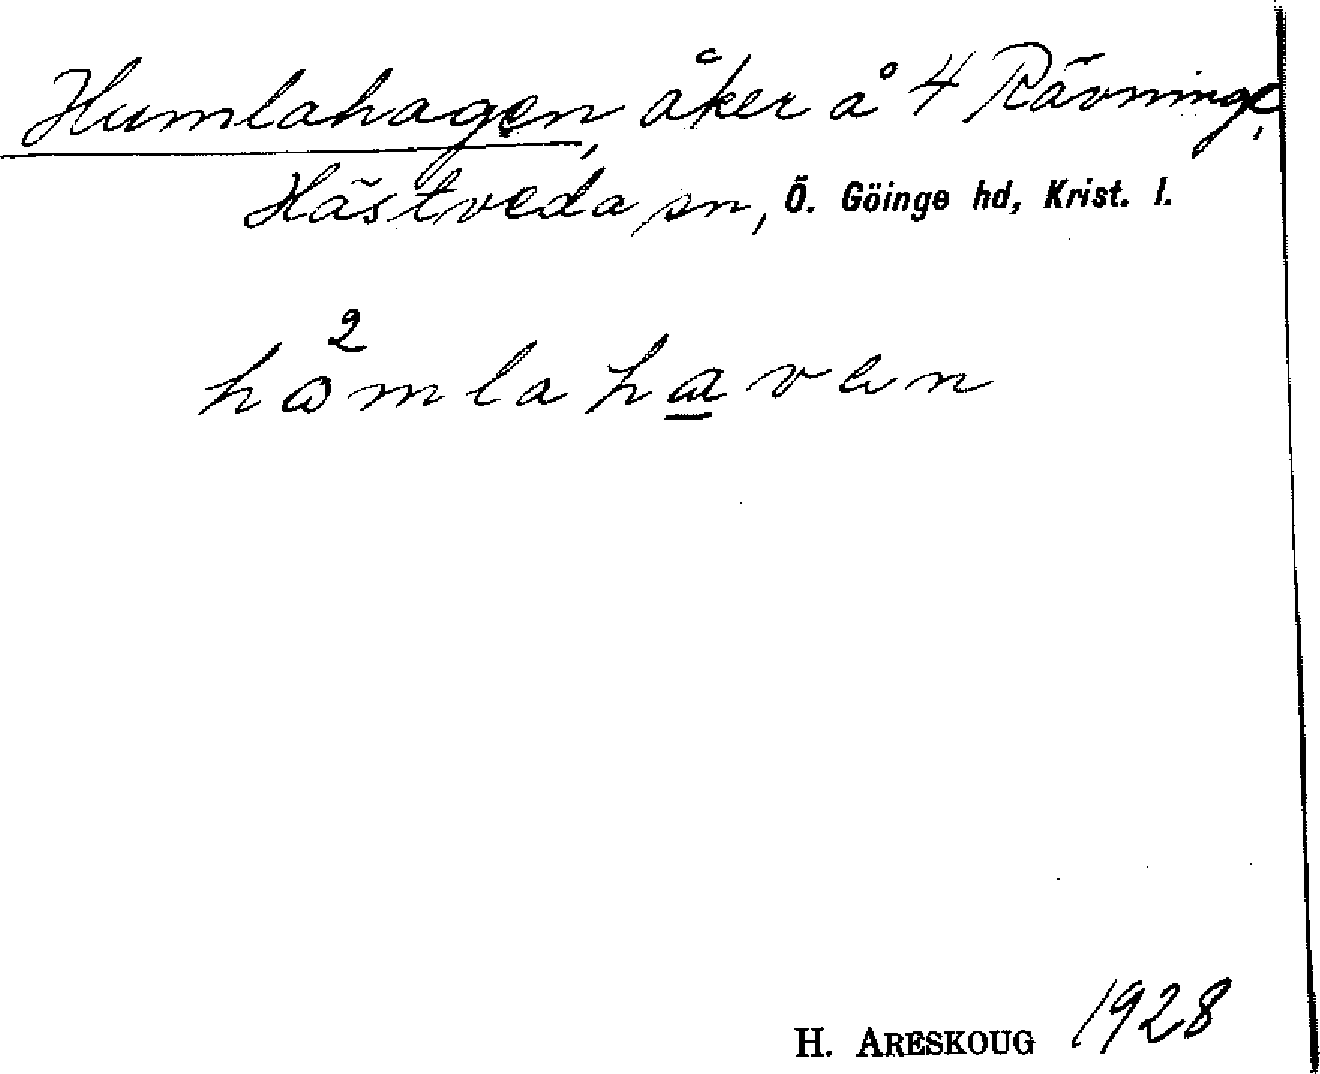 Humlahagen, åker å 4 Rävninge,
Hästveda sn, Ö. Göinge hd, Krist. l.
2
hωmlahaven
H. ARESKOUG 1928